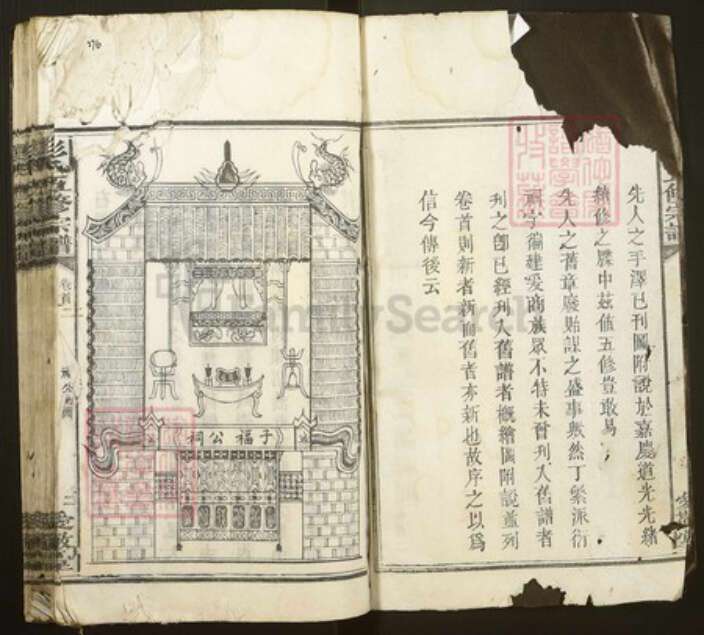 先人之手澤已刊圖附說於嘉慶道光光緒
續修之牒中茲值五修豈敢易
先人之舊章廢貽謀之盛事歟然丁繁派衍
祠宇徧建爰商族眾不特未曾列入舊譜者
列之卽已經列入舊譜者概繪圖附說並列
卷首則新者新而舊者亦新也故序之以爲
信今傳後云
376
子福公祠
五修宗譜
卷首二
FamilySearch